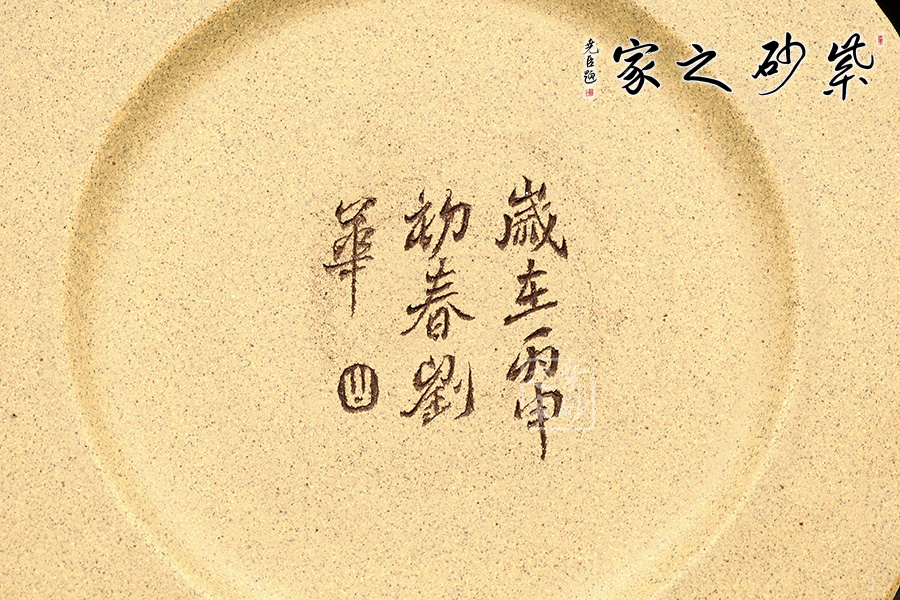 紫砂之家
尧臣题
歲在丙申
初春劉
華
山